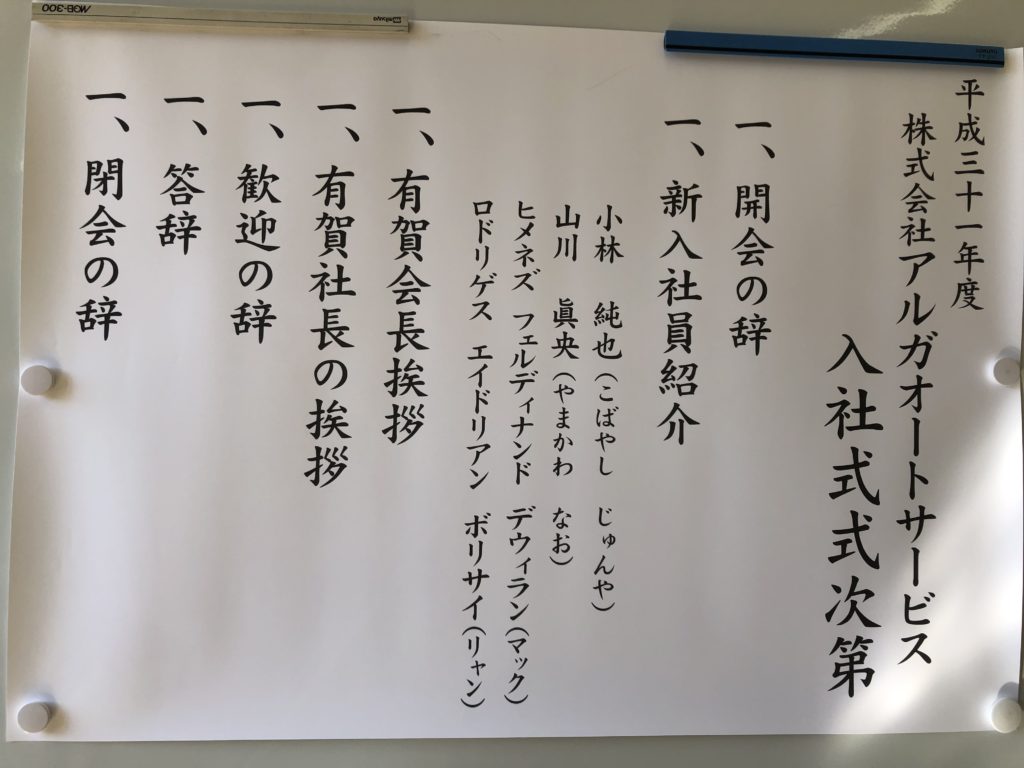 平成三十一年度
株式会社アルガオートサービス
入社式式次第
一、開会の辞
一、新入社員紹介
小林 純也（こばやし じゅんや）
山川 眞央（やまかわ なお）
ヒメネズ フェルディナンド デウィラン（マック）
ロドリゲス エイドリアン ボリサイ（リャン）
一、有賀会長挨拶
一、有賀社長の挨拶
一、歓迎の辞
一、答辞
一、閉会の辞
MGB-300